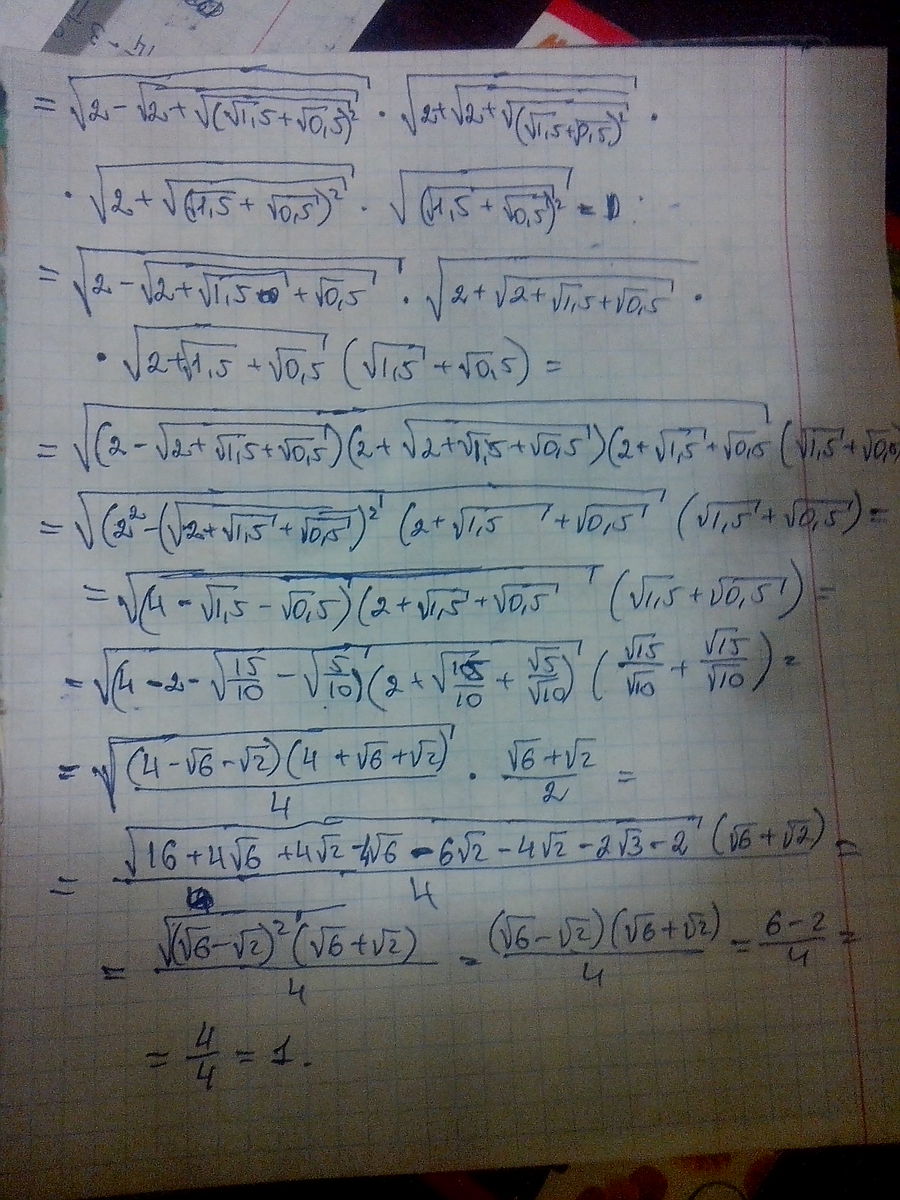 = √(2 - √(2 + √((√1,5 + √0,5)²))) · √(2 + √(2 + √((√1,5 + √0,5)²))) ·
· √(2 + √((√1,5 + √0,5)²)) · √((√1,5 + √0,5)²) =
= √(2 - √(2 + √1,5 + √0,5)) · √(2 + √(2 + √1,5 + √0,5)) ·
· √(2 + √1,5 + √0,5) (√1,5 + √0,5) =
= √((2 - √(2 + √1,5 + √0,5))(2 + √(2 + √1,5 + √0,5))(2 + √1,5 + √0,5 (√1,5 + √0,5)
= √((2² - (√(2 + √1,5 + √0,5))² (2 + √1,5 + √0,5) (√1,5 + √0,5) =
= √((4 - √1,5 - √0,5)(2 + √1,5 + √0,5) (√1,5 + √0,5) =
= √((4 - 2 - √(15/10) - √(5/10))(2 + √(15/10) + √5/√10) (√15/√10 + √15/√10) =
= √((4 - √6 - √2)(4 + √6 + √2)/4) · (√6 + √2)/2 =
= √(16 + 4√6 + 4√2 - 4√6 - 6√2 - 4√2 - 2√3 - 2) (√6 + √2)/4 =
= √((√6 - √2)²) (√6 + √2)/4 = (√6 - √2)(√6 + √2)/4 = (6 - 2)/4 =
= 4/4 = 1.